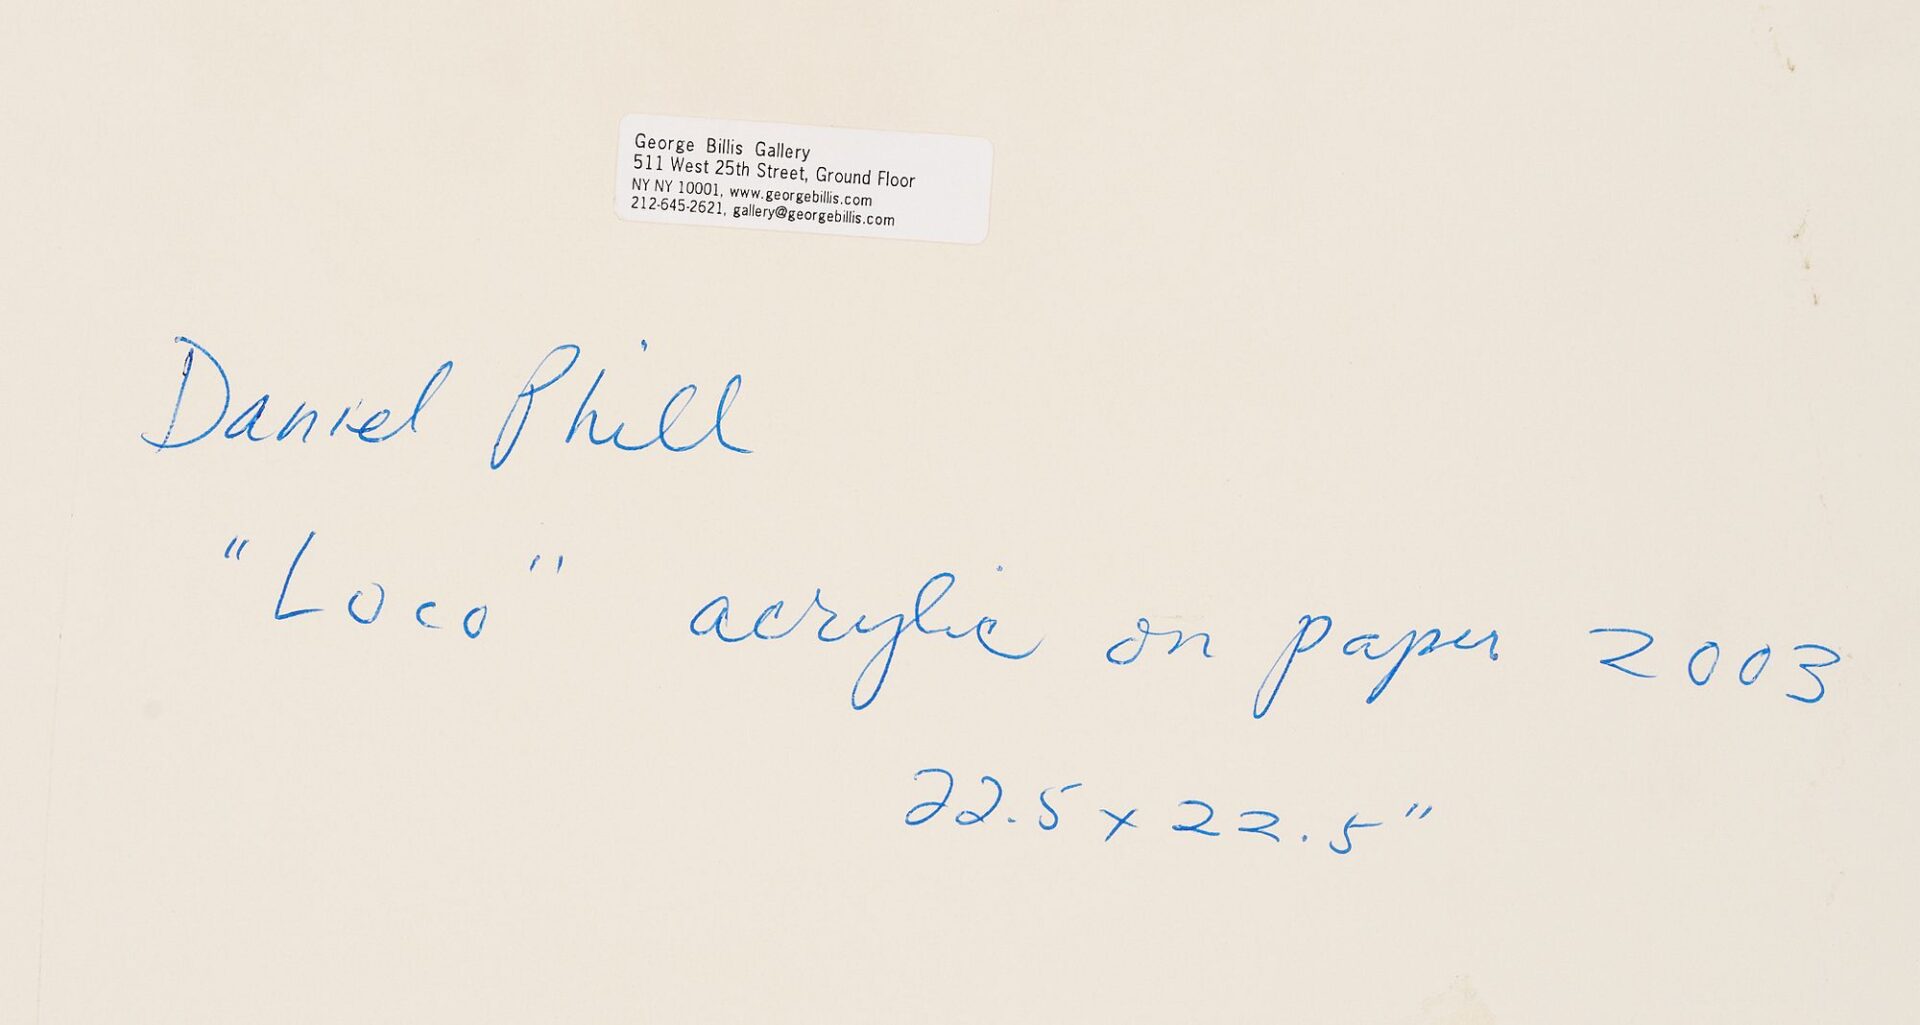 George Billis Gallery
511 West 25th Street, Ground Floor
NY NY 10001, www.georgebillis.com
212-645-2621, gallery@georgebillis.com
Daniel Phill
"Loco" acrylic on paper 2003
22.5 x 22.5"